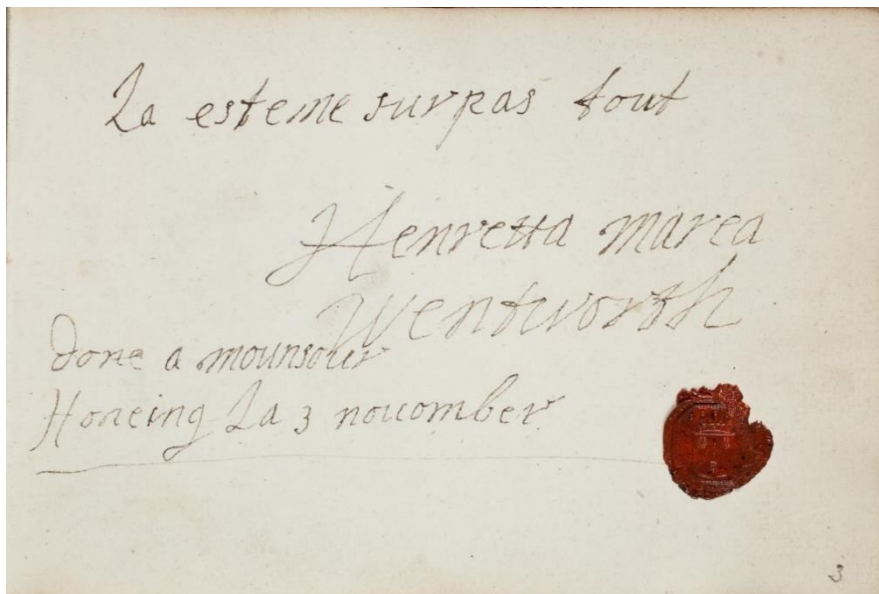 La esteme surpas tout
Henretta marea
Wentworth
done a mounsour
Honeing La 3 nouomber
3